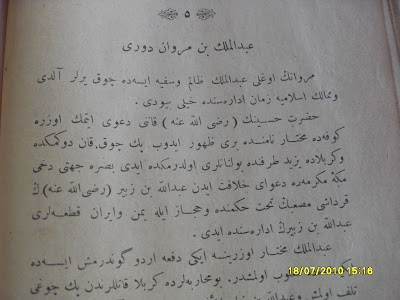 ٥
عبدالملك بن مروان دورى
مروانڭ اوغلى عبدالملك ظالم وسفيه ايسه‌ده چوق يرلر آلدى
وممالك اسلاميه زمان اداره‌سنده خيلى بيودى .
حضرت حسينك ( رضى الله عنه ) قاننى دعوى ايتمك اوزره
كوفه‌ده مختار نامنده برى ظهور ايدوب پك چوق قان دوكمكده
وكربلاده يزيد طرفنده بولنانلرى اولدرمكده ايدى بصره جهتى دخى
مكهٔ مكرمه‌ده دعواى خلافت ايدن عبدالله بن زبير (رضى الله عنه) ڭ
قرداشى مصعبڭ تحت حكمنده وحجاز ايله يمن وايران قطعه‌لرى
عبدالله بن زبيرڭ اداره‌سنده ايدى .
عبدالملك مختار اوزرينه ايكى دفعه اردو كوندرمش ايسه‌ده
اولمشدر . بو محاربه‌لرده كربلا قاتلرندن پك چوغى
تلف اولمش
18/07/2010 15:16